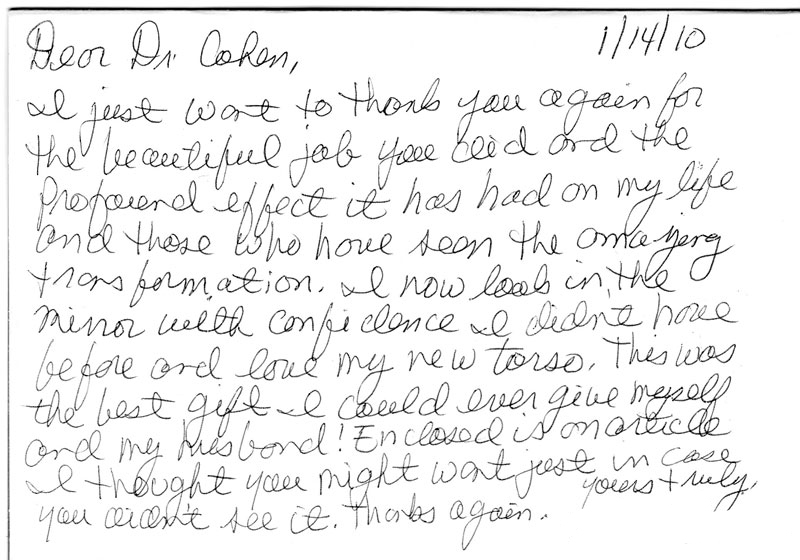 Dear Dr. Cohen, 1/14/10
I just want to thank you again for
the beautiful job you did and the
profound effect it has had on my life
and those who have seen the amazing
transformation. I now look in the
mirror with confidence I didn't have
before and love my new torso. This was
the best gift I could ever give myself
and my husband! Enclosed is an article
I thought you might want just in case
you didn't see it. Thanks again. yours truly,